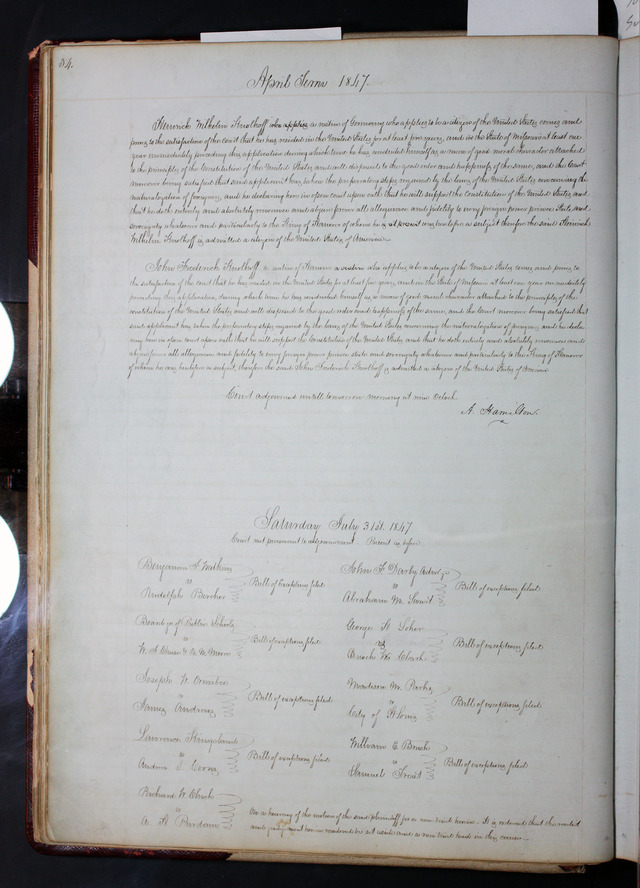 84.
April Term 1847.
Herrich Wilhelm Kinolhoff who applies a native of Germany who applies to be a citizen of the United States comes and
proves to the satisfaction of the court that he has resided in the United States for at least five years, and in the State of Missouri at least one
year immediately preceding this application during which time he has conducted himself as a man of good moral character attached
to the principles of the Constitution of the United States and well disposed to the good order and happiness of the same, and the Court
moreover being satisfied that said applicant has taken the preparatory steps required by the laws of the United States concerning the
naturalization of foreigners, and he declaring here in open court upon oath that he will support the Constitution of the United States, and
that he doth entirely and absolutely renounce and abjure forever all allegiance and fidelity to every foreign power prince State and
sovereignty whatsoever and particularly to the King of Hanover of whom he is at present
Wilhelm is admitted a citizen of the United States of America.
John Frederick a native of Hanover who applies to be a citizen of the United States comes and proves to
the satisfaction of the court that he has resided in the United States for at least five years, and in the State of Missouri at least one year immediately
preceding this application, during which time he has conducted himself as a man of good moral character attached to the principles of the
constitution of the United States and well disposed to the good order and happiness of the same, and the Court moreover being satisfied that
said applicant has taken the preparatory steps required by the laws of the United States concerning the naturalization of foreigners, and he decla-
ring here in open court upon oath that he will support the Constitution of the United States and that he doth entirely and absolutely renounce and
abjure forever all allegiance and fidelity to every foreign power prince state and sovereignty whatsoever and particularly to the King of Hanover
of whom he was heretofore a subject, therefore the said John Frederick is admitted a citizen of the United States of America
Court adjourned untill tomorrow morning at nine Oclock
A. Hamilton.
Saturday July 31st. 1847
Court met pursuant to adjournment. Present as before
Benjamin F
vs
Randolph
Bill of exceptions filed
John F Darby Admr
vs
Abraham M
Bill of exceptions filed
Board &c of Public Schools
vs
Bill of exceptions filed
George H
vs
Enoch Clark
Bill of exceptions filed
Joseph W
vs
James Andrews
Bill of exceptions filed
Madison M.
vs
City of St Louis
Bill of exceptions filed
Lawrence Kingsland
vs
Andrew
Bill of exceptions filed
William E
vs
Samuel
Bill of exceptions filed
Richard W
vs
A. H
On a hearing of the motion of the said plaintiff for a new trial herein. It is ordered that the verdict
and judgment herein rendered be set aside and a new trial had in this cause.